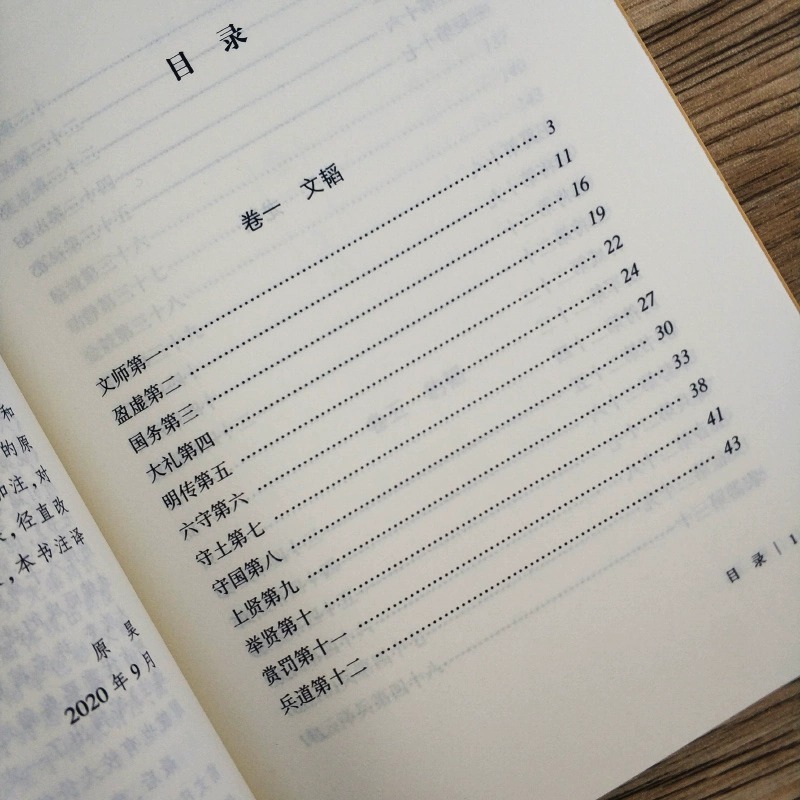 和
的原
和注,对
,径直改
,本书注译
原 昊
2020年9月
目 录
卷一 文韬
文师第一 3
盈虚第二 11
国务第三 16
大礼第四 19
明传第五 22
六守第六 24
守土第七 27
守国第八 30
上贤第九 33
举贤第十 38
赏罚第十一 41
兵道第十二 43
目 录 | 1